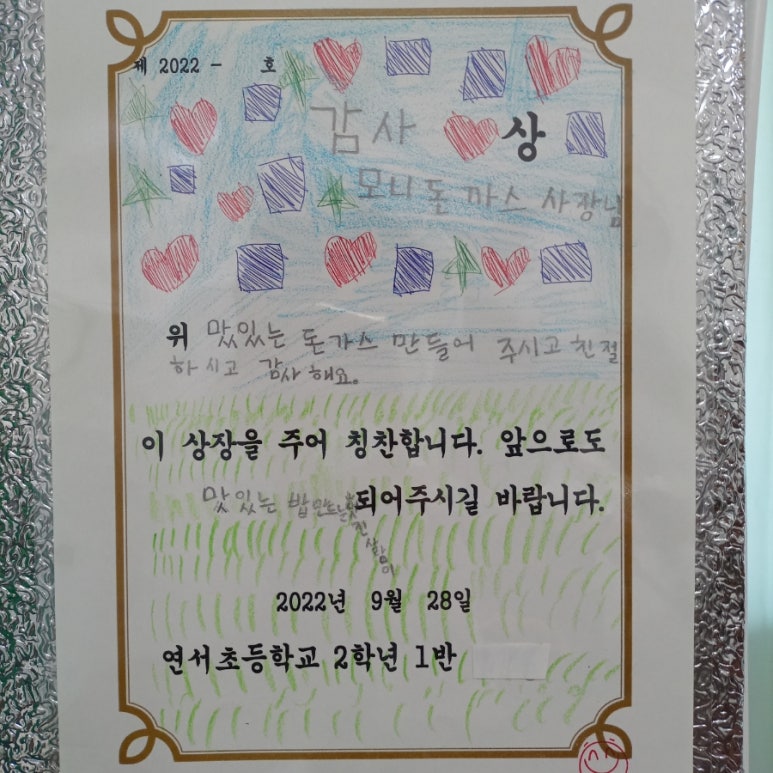 제 2022 - 호
감사 상
모니돈까스 사장님
위 맜있는 돈가스 만들어 주시고 친절
하시고 감사해요.
이 상장을 주어 칭찬합니다. 앞으로도
맛있는 밥 만드는 멋진 사람이 되어주시길 바랍니다.
2022년 9월 28일
연서초등학교 2학년 1반